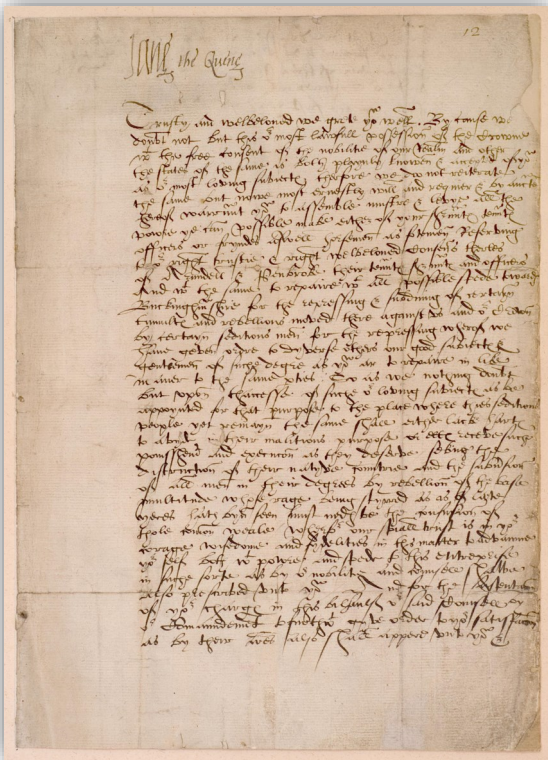 12
Jane the Quene
Trusty and welbeloved we grete you well. By cause we
doubt not but this or most lawfull possession of the Crowne
wt the free consent of the nobilitie of our Realm and other
the states of the same is both playnly knowen & accepted of you
as or most loving subiects therfore we do not reiterate
the same but nowe most ernestly will and require & by auctoritie
herof warrant you to assemble muster & levye all the
powre ye can possible make either of your
officers or frendes as well horsemen as fotemen reserving
to or right trustie & right welbeloved Cousens therles
of Arundell & Penbroke their and officers
And wt the same to repaire wt all possible spede towards
Buckinghamshire for the repressing & subduing of certain
tumults and rebellions moved there against us and or Crowne
by certain seditious men for the repressing wherof we
have geven ordre to dyverse others our good subiects &
gentlemen of suche degre as you ar to repaire in like
maner to the same So as we nothing doubt
but upon of suche or loving subiects as be
appoynted for that purpose to the place where thies seditious
people yet remayn the same shall either lack hartes
to abyde in their malitious purpose or els receive suche
ponishment and execution as they deserve seking the
distruction of their natyve countrie and the subversion
of all men in their degrees by rebellion of the base
multitude whose rage being styrred as of late
yeres hath ben seen must nedes be the confusion of
thole comon weale Wherfore our speciall trust is in yor
corage wisedome and fydelities in this matter to advaunce
yor self both wt powre and spede to this entreprise
in suche sorte as by or nobilitie and Counsell shalbe
also prescribed unto you And for the
of yor charge in this behalf or said Counsell by
or Comaundement give order to yor satisfaction
as by their also shall appere unto you &